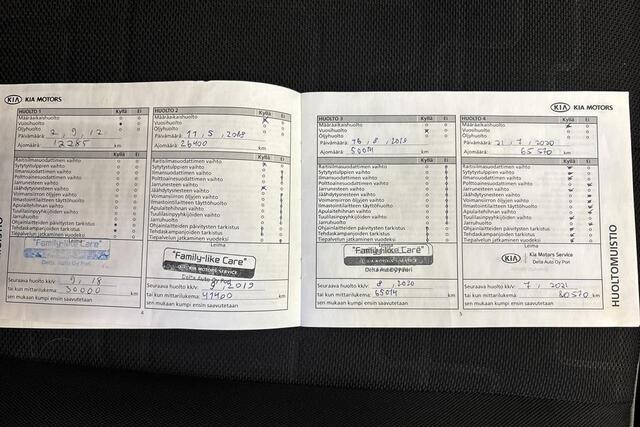 KIA KIA MOTORS
HUOLTO 1 Kyllä Ei
Määräaikaishuolto
Vuosihuolto
Öljyhuolto
Päivämäärä: 2, 9, 12
Ajomäärä: 12285 km
Raitisilmasuodattimen vaihto
Sytytystulppien vaihto
Ilmansuodattimen vaihto
Polttoainesuodattimen vaihto
Jarrunesteen vaihto
Jäähdytysnesteen vaihto
Voimansiirron öljyjen vaihto
Ilmastointilaitteen täyttöhuolto
Apulaitehihnan vaihto
Tuulilasinpyyhkijöiden vaihto
Jarruhuolto
Ohjainlaitteiden päivitysten tarkistus
Tehdaskampanjoiden tarkistus
Tiepalvelun jatkaminen vuodeksi
Leima
"Family-like Care"
Delta Auto Oy Pori
Seuraava huolto kk/v: 9, 18
tai kun mittarilukema: 30000 km
sen mukaan kumpi ensin saavutetaan
4
HUOLTO 2 Kyllä Ei
Määräaikaishuolto
Vuosihuolto
Öljyhuolto
Päivämäärä: 11, 5, 2018
Ajomäärä: 26400 km
Raitisilmasuodattimen vaihto
Sytytystulppien vaihto
Ilmansuodattimen vaihto
Polttoainesuodattimen vaihto
Jarrunesteen vaihto
Jäähdytysnesteen vaihto
Voimansiirron öljyjen vaihto
Ilmastointilaitteen täyttöhuolto
Apulaitehihnan vaihto
Tuulilasinpyyhkijöiden vaihto
Jarruhuolto
Ohjainlaitteiden päivitysten tarkistus
Tehdaskampanjoiden tarkistus
Tiepalvelun jatkaminen vuodeksi
Leima
"Family-like Care"
KIA MOTORS SERVICE
Delta Auto Oy Pori
Seuraava huolto kk/v: 2019
tai kun mittarilukema: 41400 km
sen mukaan kumpi ensin saavutetaan
KIA KIA MOTORS
HUOLTO 3 Kyllä Ei
Määräaikaishuolto
Vuosihuolto
Öljyhuolto
Päivämäärä: 16, 8, 2019
Ajomäärä: 50014 km
Raitisilmasuodattimen vaihto
Sytytystulppien vaihto
Ilmansuodattimen vaihto
Polttoainesuodattimen vaihto
Jarrunesteen vaihto
Jäähdytysnesteen vaihto
Voimansiirron öljyjen vaihto
Ilmastointilaitteen täyttöhuolto
Apulaitehihnan vaihto
Tuulilasinpyyhkijöiden vaihto
Jarruhuolto
Ohjainlaitteiden päivitysten tarkistus
Tehdaskampanjoiden tarkistus
Tiepalvelun jatkaminen vuodeksi
Leima
"Family-like Care"
KIA MOTORS SERVICE
Delta Auto Oy Pori
Seuraava huolto kk/v: 8, 2020
tai kun mittarilukema: 65014 km
sen mukaan kumpi ensin saavutetaan
5
HUOLTO 4 Kyllä Ei
Määräaikaishuolto
Vuosihuolto
Öljyhuolto
Päivämäärä: 21, 7, 2020
Ajomäärä: 65570 km
Raitisilmasuodattimen vaihto
Sytytystulppien vaihto
Ilmansuodattimen vaihto
Polttoainesuodattimen vaihto
Jarrunesteen vaihto
Jäähdytysnesteen vaihto
Voimansiirron öljyjen vaihto
Ilmastointilaitteen täyttöhuolto
Apulaitehihnan vaihto
Tuulilasinpyyhkijöiden vaihto
Jarruhuolto
Ohjainlaitteiden päivitysten tarkistus
Tehdaskampanjoiden tarkistus
Tiepalvelun jatkaminen vuodeksi
Leima
KIA Kia Motors Service
Delta Auto Oy Pori
Seuraava huolto kk/v: 7, 2021
tai kun mittarilukema: 80570 km
sen mukaan kumpi ensin saavutetaan
HUOLTOMUISTIO